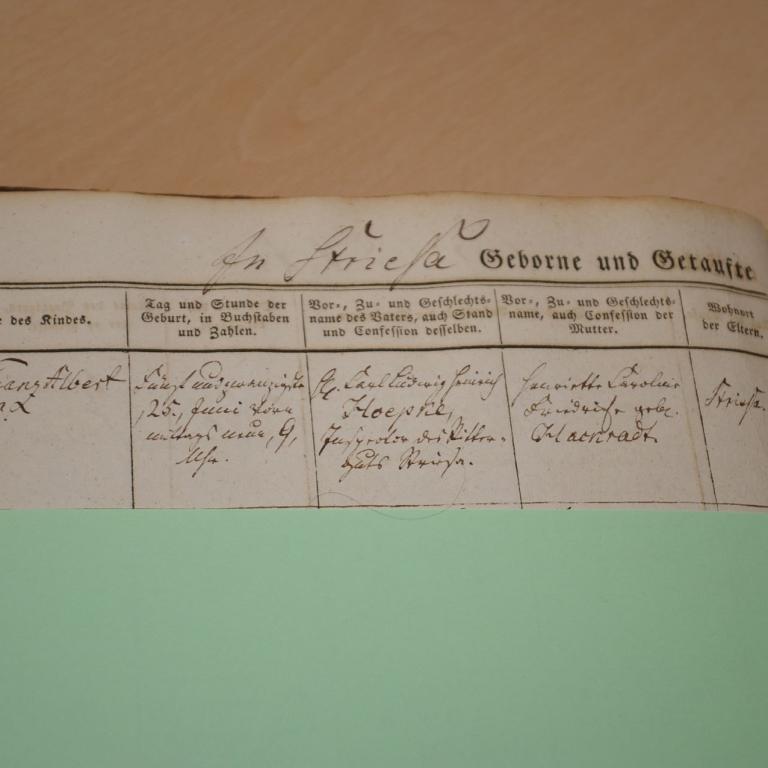 In Striesa Geborne und Getaufte
des Kindes.
Tag und Stunde der
Geburt, in Buchstaben
und Zahlen.
Vor-, Zu- und Geschlechts-
name des Vaters, auch Stand
und Confession desselben.
Vor-, Zu- und Geschlechts-
name, auch Confession der
Mutter.
Wohnort
der Eltern.
Albert
Fünf und zwanzigste
25, Juni Vor-
mittags neun, 9,
Uhr.
Carl Ludwig Heinrich
Hoepne,
Inspector des Ritter-
guts Striesa.
Henriette Caroline
Friedrike geb.
Striesa.